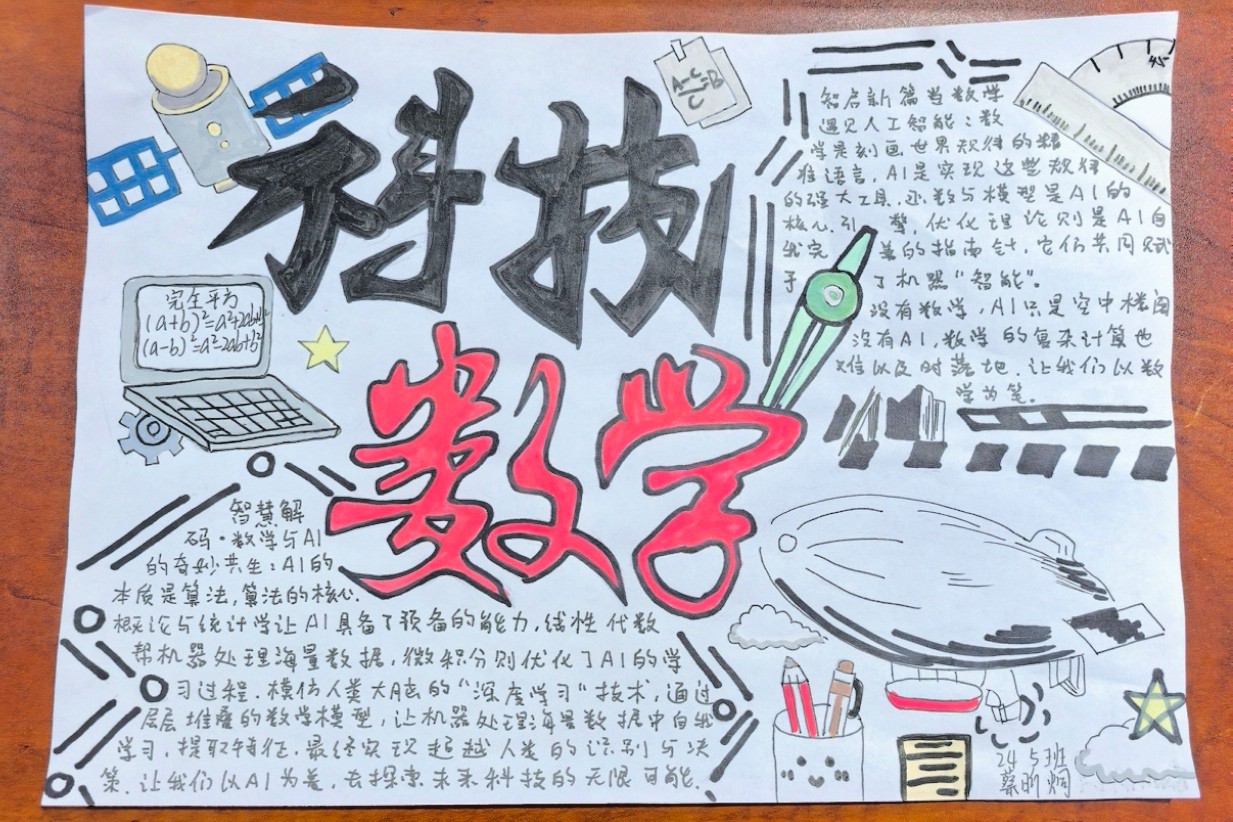 科技
数学
A-C=B
C
完全平方
(a+b)²=a²+2ab+b²
(a-b)²=a²-2ab+b²
智启新篇当数学
遇见人工智能：数
学是刻画世界规律的精
准语言，AI是实现这些规律
的强大工具，函数与模型是AI的
核心引擎，优化理论则是AI自
我完善的指南针，它们共同赋
予了机器“智能”。
没有数学，AI只是空中楼阁
没有AI，数学的复杂计算也
难以及时落地．让我们以数
学为笔．
智慧解
码·数学与AI
的奇妙共生：AI的
本质是算法，算法的核心．
概论与统计学让AI具备了预备的能力，线性代数
帮机器处理海量数据，微积分则优化了AI的学
习过程．模仿人类大脑的“深度学习”技术，通过
层层堆叠的数学模型，让机器处理海量数据中自我
学习，提取特征，最终实现超越人类的识别与决
策．让我们以AI为
，去探索未来科技的无限可能．
24 5班
蔡昕炯